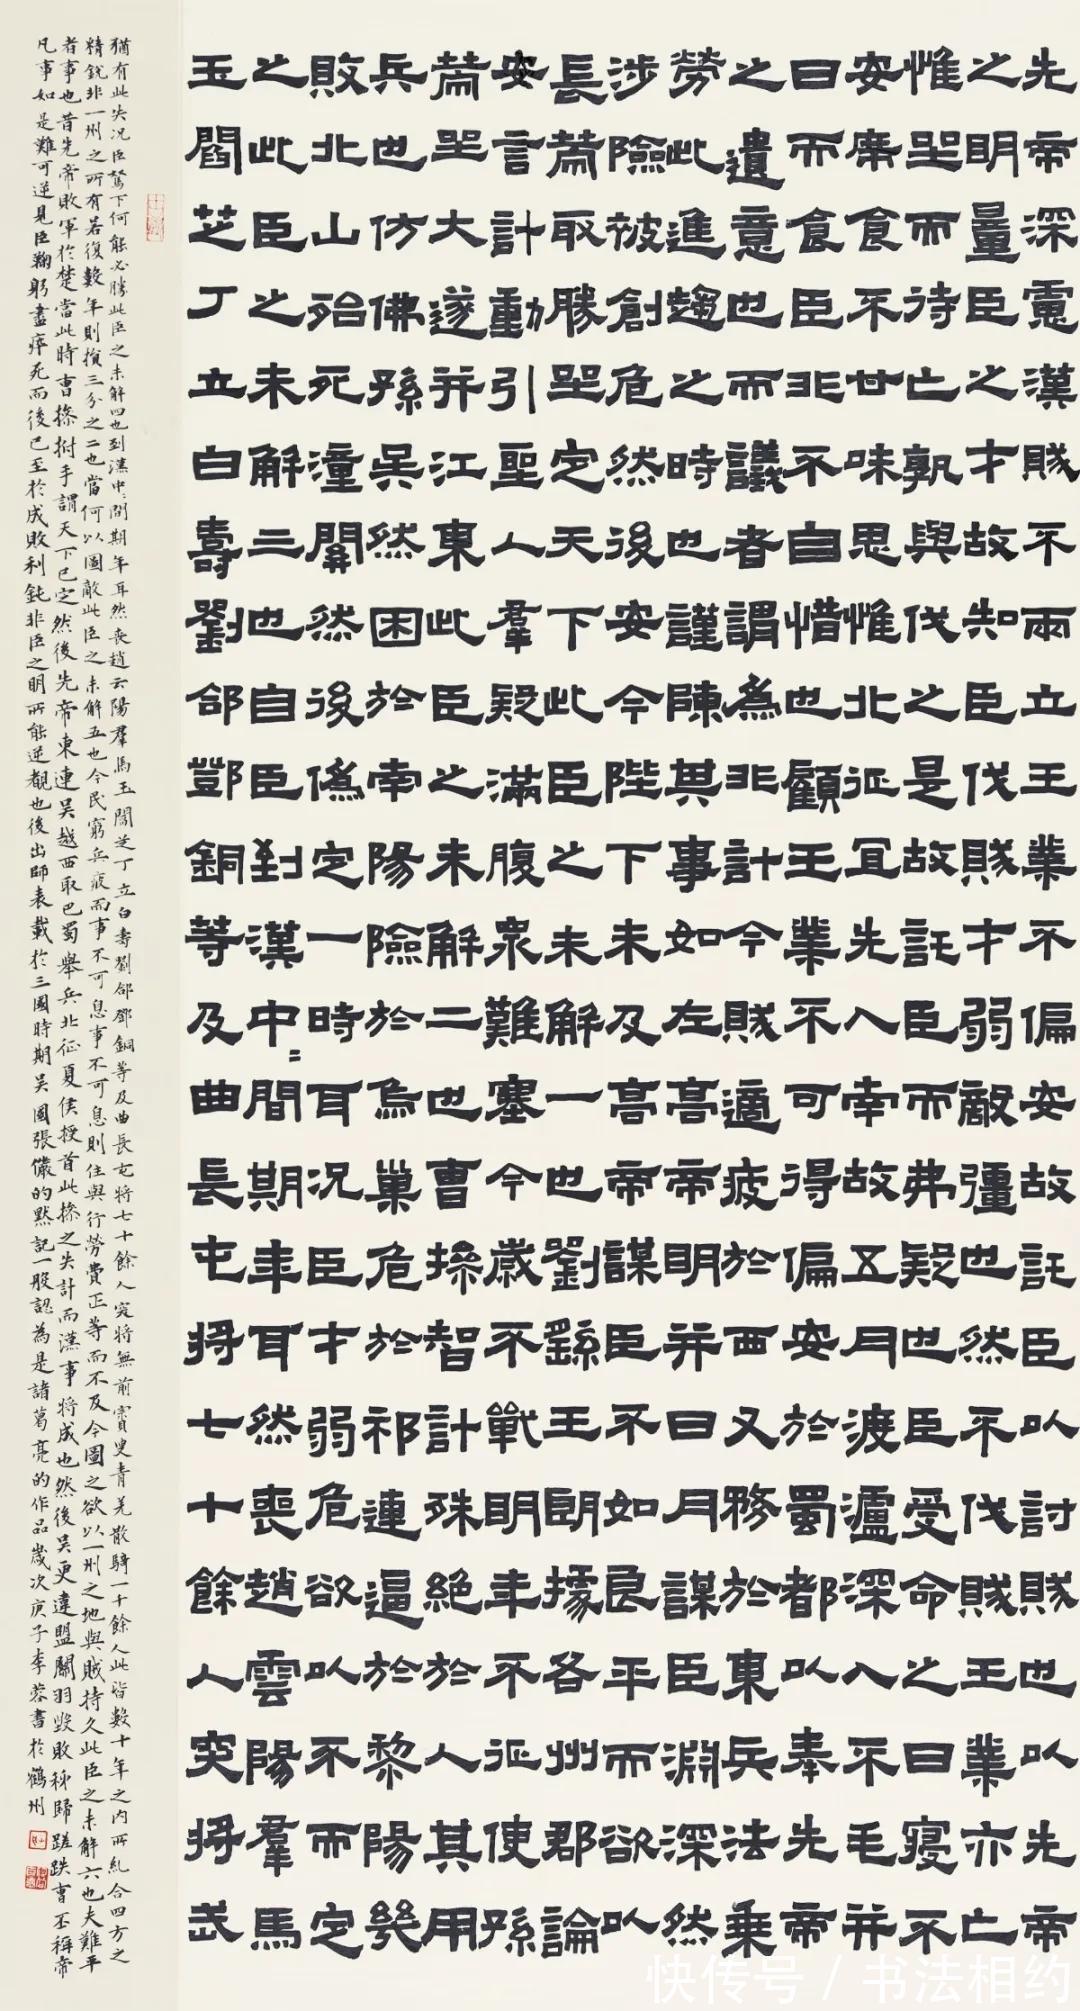 先帝深慮漢賊不兩立王業不偏安故託臣以討賊也以先帝
之明量臣之才故知臣伐賊才弱敵彊也然不伐賊王業亦亡
惟坐而待亡孰與伐之是故託臣而弗疑也臣受命之日寢不
安席食不甘味思惟北征宜先入南故五月渡瀘深入不毛并
日而食臣非不自惜也顧王業不可得偏安於蜀都以奉先帝
之遺意也而議者謂為非計今賊適疲於西又務於東兵法乘
勞此進趨之時也謹陳其事如左高帝明并日月謀臣淵深然
涉險被創危然後安今陛下未及高帝謀臣不如良平而欲以
長策取勝坐定天下此臣之未解一也劉繇王朗據各州郡論
安言計動引聖人羣疑滿腹眾難塞今歲不戰明年不征使孫
策坐大遂并江東此臣之未解二也曹操智計殊絕於人其用
兵也仿佛孫吳然困於南陽險於烏巢危於祁連逼於黎陽幾
敗北山殆死潼關然後偽定一時耳況臣才弱危欲以不而定
之此臣之未解三也自臣到漢中〻間期年耳然喪趙雲陽羣馬
玉閻芝丁立白壽劉郃鄧銅等及曲長屯將七十餘人突將武
猶有此失況臣駑下何能必勝此臣之未解四也到漢中〻間期年耳然喪趙云陽羣馬玉閻芝丁立白壽劉郃鄧銅等及曲長屯將七十餘人突將無前賨叟青羌散騎一十餘人此皆數十年之內所糺合四方之
精銳非一州之所有若復數年則損三分之二也當何以圖敵此臣之未解五也今民窮兵疲而事不可息事不可息則住與行勞費正等而不及今圖之欲以一州之地與賊持久此臣之未解六也夫難平
者事也昔先帝敗軍於楚當此時曹操拊手謂天下已定然後先帝東連吳越西取巴蜀舉兵北征夏侯授首此操之失計而漢事將成也然後吳更違盟關羽毀敗秭歸蹉跌曹丕稱帝
凡事如是難可逆見臣鞠躬盡瘁死而後已至於成敗利鈍非臣之明所能逆覩也後出師表載於三國時期吳國張儼的默記一般認為是諸葛亮的作品歲次庚子李蓉書於鶴州
快传号 / 书法相约